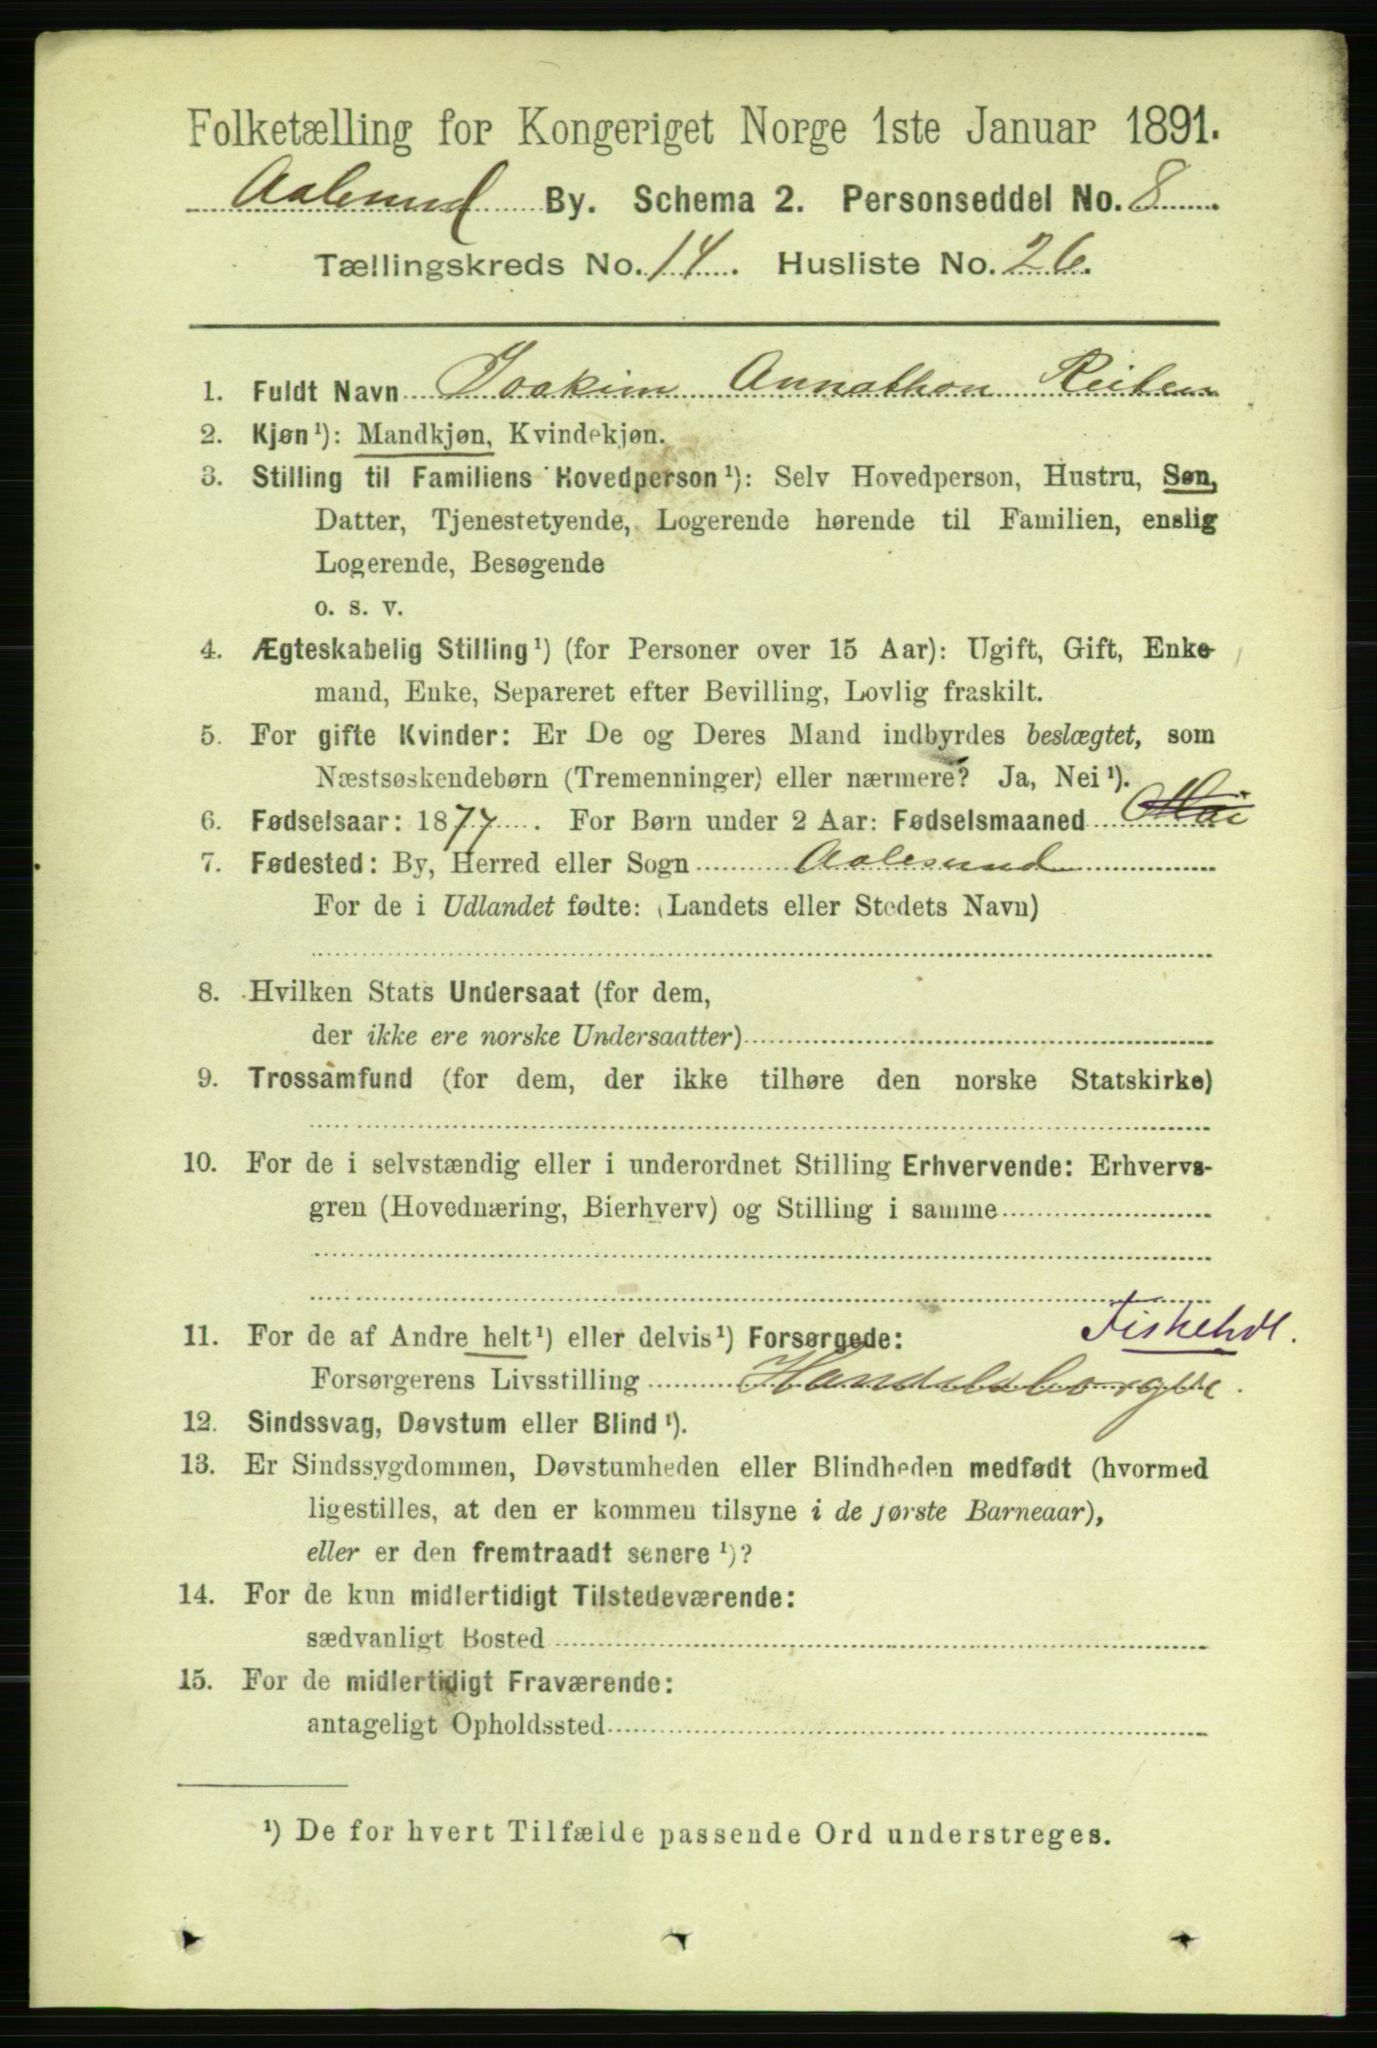 Folketælling for Kongeriget Norge 1ste Januar 1891.
Aalesund By. Schema 2. Personseddel No. 8
Tællingskreds No. 14. Husliste No. 26.
1. Fuldt Navn Joakim Annathon Reiten
2. Kjøn¹): Mandkjøn, Kvindekjøn.
3. Stilling til Familiens Hovedperson¹): Selv Hovedperson, Hustru, Søn,
Datter, Tjenestetyende, Logerende hørende til Familien, enslig
Logerende, Besøgende
o. s. v.
4. Ægteskabelig Stilling¹) (for Personer over 15 Aar): Ugift, Gift, Enke-
mand, Enke, Separeret efter Bevilling, Lovlig fraskilt.
5. For gifte Kvinder: Er De og Deres Mand indbyrdes beslægtet, som
Næstsøskendebørn (Tremenninger) eller nærmere? Ja, Nei¹).
6. Fødselsaar: 1877. For Børn under 2 Aar: Fødselsmaaned Mai
7. Fødested: By, Herred eller Sogn Aalesund
For de i Udlandet fødte: (Landets eller Stedets Navn)
8. Hvilken Stats Undersaat (for dem,
der ikke ere norske Undersaatter)
9. Trossamfund (for dem, der ikke tilhøre den norske Statskirke)
10. For de i selvstændig eller i underordnet Stilling Erhvervende: Erhvervs-
gren (Hovednæring, Bierhverv) og Stilling i samme
Fiskehdl.
11. For de af Andre helt¹) eller delvis¹) Forsørgede:
Forsørgerens Livsstilling Handelsborger.
12. Sindssvag, Døvstum eller Blind¹).
13. Er Sindssygdommen, Døvstumheden eller Blindheden medfødt (hvormed
ligestilles, at den er kommen tilsyne i de første Barneaar),
eller er den fremtraadt senere¹)?
14. For de kun midlertidigt Tilstedeværende:
sædvanligt Bosted
15. For de midlertidigt Fraværende:
antageligt Opholdssted
¹) De for hvert Tilfælde passende Ord understreges.